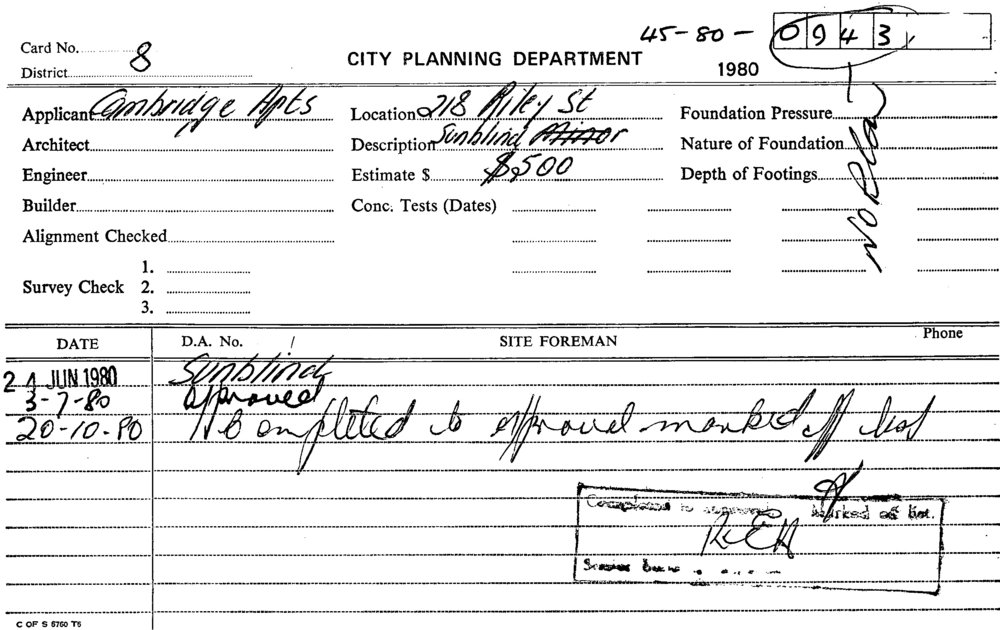 45-80-0943
Card No. 8
District
CITY PLANNING DEPARTMENT
1980
Applicant Cambridge Apts
Location 218 Riley St
Foundation Pressure
Architect
Description Sunblind Minor
Nature of Foundation
Engineer
Estimate $ $,500
Depth of Footings
Builder
Conc. Tests (Dates)
NO Plan
Alignment Checked
1.
Survey Check 2.
3.
DATE D.A. No. / SITE FOREMAN Phone
24 JUN 1980 Sunblind
3-7-80 approved
20-10-80 completed to approval marked off list
Completed to approval Marked off list.
Senior
C OF S 6760 T6